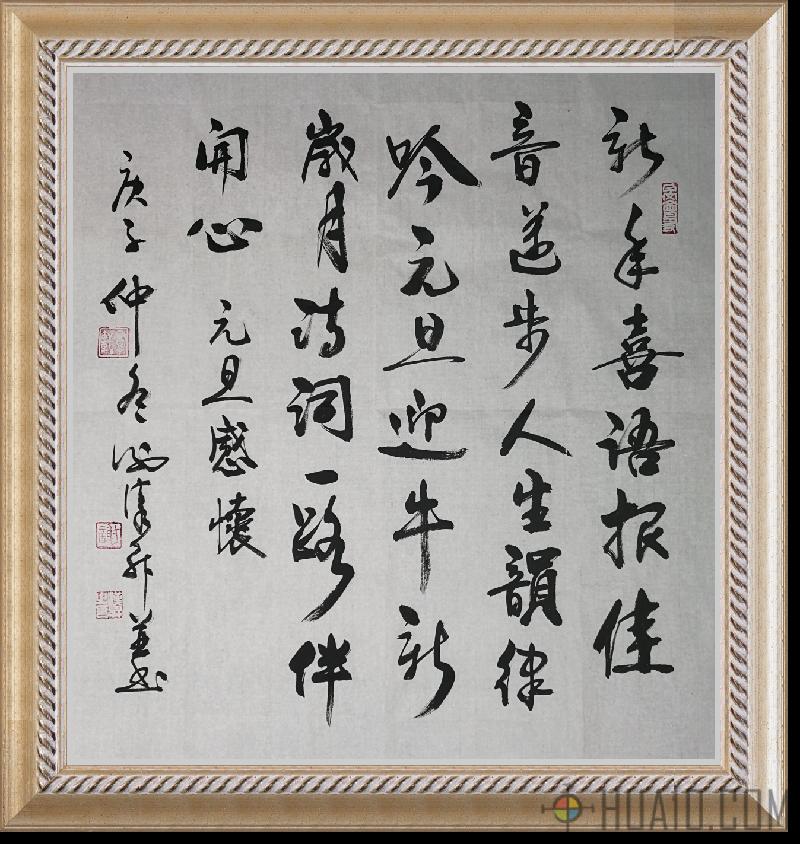 新年喜语报佳
音迈步人生韻律
吟元旦迎牛新
歲月诗词一路伴
開心 元旦感懷
庚子仲冬 谢升并书
HUA10.COM